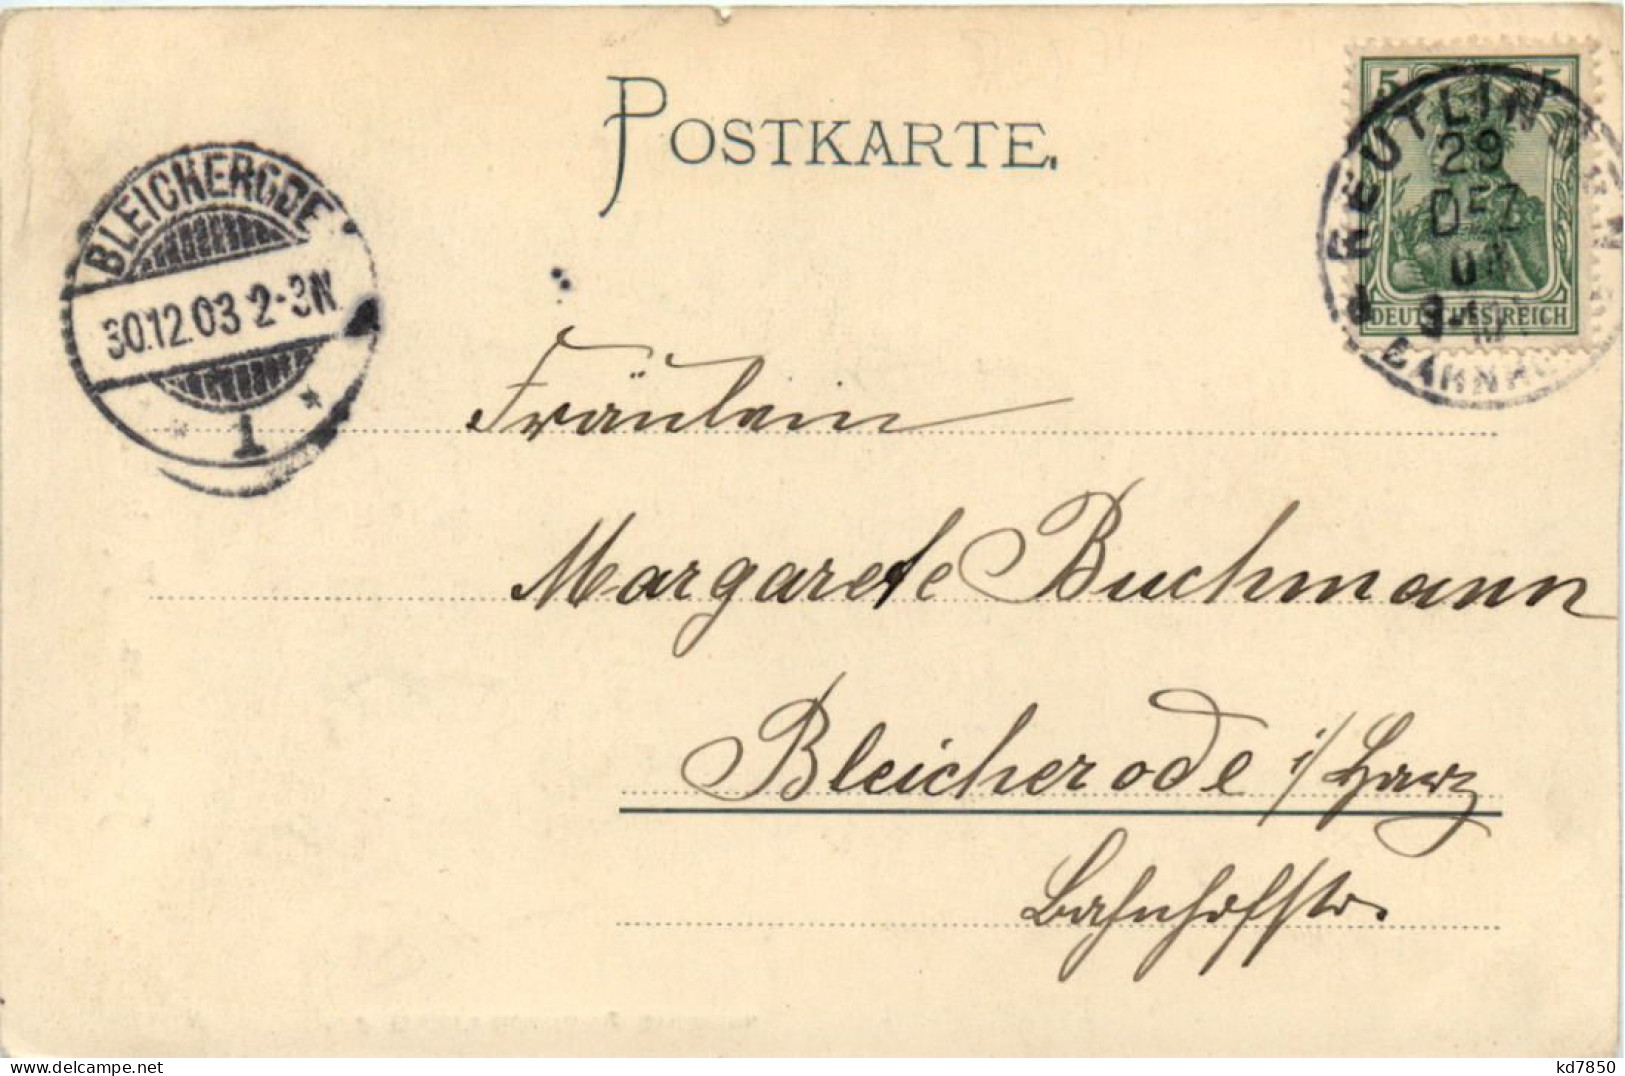 POSTKARTE.
5 5
REUTLINGEN
29
DEZ
BAHNHOF
DEUTSCHES REICH
BLEICHERODE
30.12.03 2-3N
* 1 *
Fräulein
Margarete Buchmann
Bleicherode i/Harz
Bahnhofstr.
kd7850